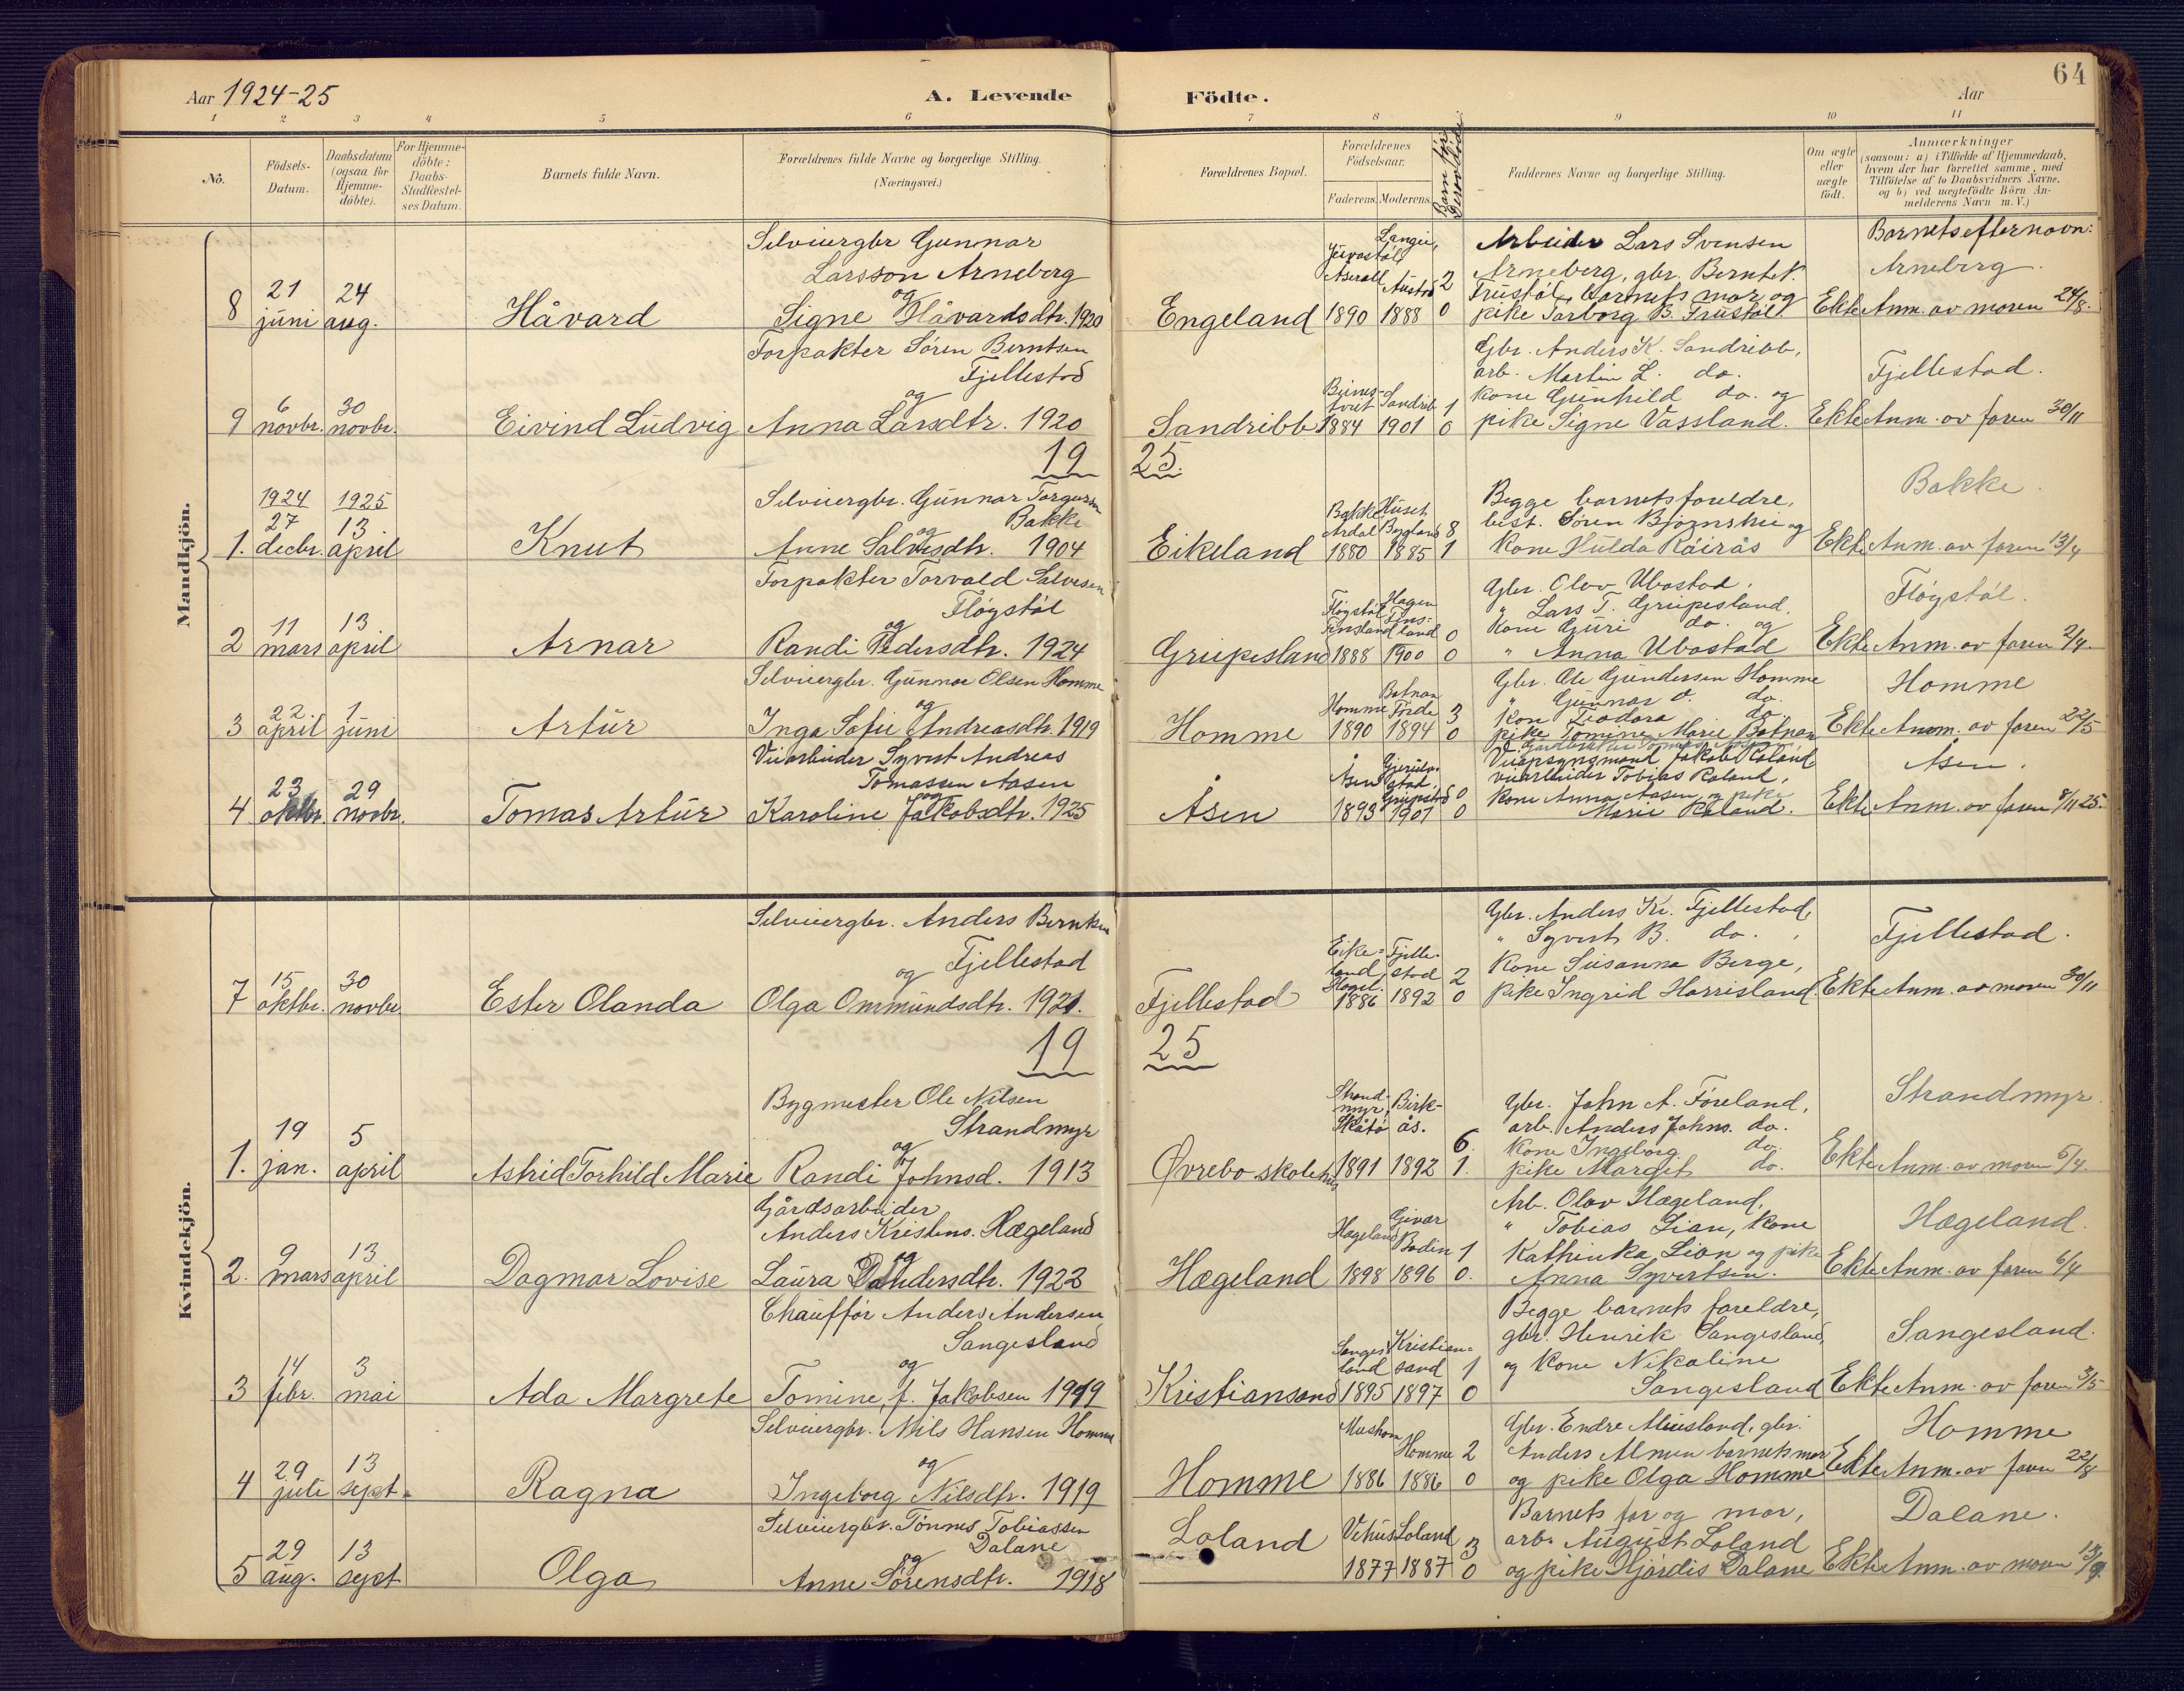 64
Aar 1924-25
A. Levende Födte.
Aar
1 2 3 4 5 6 7 8 9 10 11
No.
Födsels-
Datum.
Daabsdatum
(ogsaa for
Hjemme-
döbte).
For Hjemme-
döbte:
Daabs-
Stadfæstel-
ses Datum.
Barnets fulde Navn.
Forældrenes fulde Navne og borgerlige Stilling.
(Næringsvei.)
Forældrenes Bopæl.
Forældrenes
Födselsaar.
Faderens. Moderens.
Faddernes Navne og borgerlige Stilling.
Om ægte
eller
uægte
födt.
Anmærkninger
(saasom: a) i Tilfælde af Hjemmedaab,
hvem der har forrettet samme, med
Tilföielse af to Daabsvidners Navne.
og b) ved uægtefödte Börn An-
melderens Navn m. V.)
Mandkjön.
8
21
juni
24
aug.
Håvard
Selveiergbr Gunnar
Larsson Arneberg
og
Signe Håvardsdtr. 1920
Engeland
Aseral
1890
1888
2
0
Arbeider Lars Svensen
Arneberg, gbr. Bernt N.
Trustøl, barnets mor og
pike Torborg B. Trustøl.
Ekte
Barnets efternavn:
Arneberg.
Anm. av moren 24/8.
9
6
novbr.
30
novbr.
Eivind Ludvig
Forpakter Søren Berntsen
Fjellestad
og
Anna Larsdtr. 1920
Sandribb
Sandrib
1884
1901
1
0
Gbr. Anders K. Sandribb,
arb. Martin L. do.
kone Gunhild do. og
pike Signe Vassland.
Ekte
Fjellestad.
Anm. av faren 30/11
19 25.
1.
1924
27
decbr.
1925
13
april
Knut
Selveiergbr. Gunnar Torgersen
Bakke
og
Anne Salvesdtr. 1904
Eikeland
Bakke
Årdal
1880
Huset
Bygland
1885
8
1
Begge barnets foreldre,
best. Søren Bjørnshei og
kone Hulda Råirås
Ekte
Bakke.
Anm. av faren 13/4
2
11
mars
13
april
Arnar
Forpakter Torvald Salvesen
Fløystøl
og
Randi Pedersdtr. 1924
Greipesland
Fløystøl
Finsland
1888
Hagen
Fins-
land
1900
0
0
Gbr. Olav Ubostad,
" Lars T. Greipesland,
Kone Guri do. og
" Anna Ubostad
Ekte
Fløystøl.
Anm. av faren 2/4.
3
22
april
1
juni
Artur
Selveiergbr. Gunnar Olsen Homme
og
Inga Sofie Andreasdtr. 1919
Homme
Homme
1890
Førde
1894
3
0
Gbr. Ole Gundersen Homme
" Gunnar O. do.
Kone Teodora do.
pike Tomine Marie
Ekte
Homme
Anm. av faren 22/5
4
23
oktbr.
29
novbr.
Tomas Artur
Veiarbeider Syvert Andreas
Tomassen Aasen
og
Karoline Jakobsdtr. 1925
Åsen
Åsen
1893
1901
0
0
Veiopsynsmand Jakob Råland
veiarbeider Tobias Røland,
kone Anna Aasen og pike
Marie Røland.
Ekte
Åsen.
Anm. av faren 8/11 25.
Kvindekjön.
7
15
oktbr.
30
novbr.
Ester Olanda
Selveiergbr. Anders Berntsen
Fjellestad
og
Olga Ommundsdtr. 1921.
Fjellestad
Eike-
land
Hægel.
1886
Fjelle-
stad
1892
2
0
Gbr. Anders Kr. Fjellestad,
" Syvert B. do.,
Kone Susanna Berge,
pike Ingrid Harrisland.
Ekte
Fjellestad.
Anm. av moren 30/11
19 25
1.
19
jan.
5
april
Astrid Torhild Marie
Bygmester Ole Nilsen
Strandmyr
og
Randi Johnsd. 1913
Øvrebo skolehus
Strand-
myr,
Skåtø
1891
Birk-
ås.
1892
6
1.
Gbr. John A. Føreland,
arb. Anders Johns. do.
Kone Ingeborg do.
pike Margit do.
Ekte
Strandmyr.
Anm. av moren 5/4.
2.
9
mars
13
april
Dagmar Lovise
Gårdsarbeider
Anders Kristens. Hægeland
og
Laura 1923
Hægeland
Hægeland
1898
Givær
Bodin
1896
1
0.
Arb. Olav Hægeland,
" Tobias Lian, Kone
Kathinka Lian og pike
Anna Syvertsen.
Ekte
Hægeland.
Anm. av faren 6/4
3
14
febr.
3
mai
Ada Margrete
Chauffør Anders Andersen
Sangesland
og
Tomine, f. Jakobsen 1919
Kristiansand
Sanges-
land
1895
Kristian-
sand
1897
1
0
Begge barnets foreldre,
gbr. Henrik Sangesland,
og kone Nikoline
Sangesland
Ekte
Sangesland.
Anm. av faren 3/5
4
29
juli
13
sept.
Ragna
Selveiergbr. Nils Hansen Homme
og
Ingeborg Nilsdtr. 1919
Homme
1886
Homme
1886
2
0
Gbr. Endre gbr.
Anders barnets mor
og pike Olga Homme
Ekte
Homme
Anm. av faren 22/8
5
29
aug.
13
sept.
Olga
Selveiergbr. Tønnes Tobiassen
Dalane
og
Anne Sørensdtr. 1918
Loland
Vehus
1877
Loland
1887
3
0
Barnets far og mor,
arb. August Loland
og pike Hjørdis Dalane
Ekte
Dalane.
Anm. av moren 13/9.